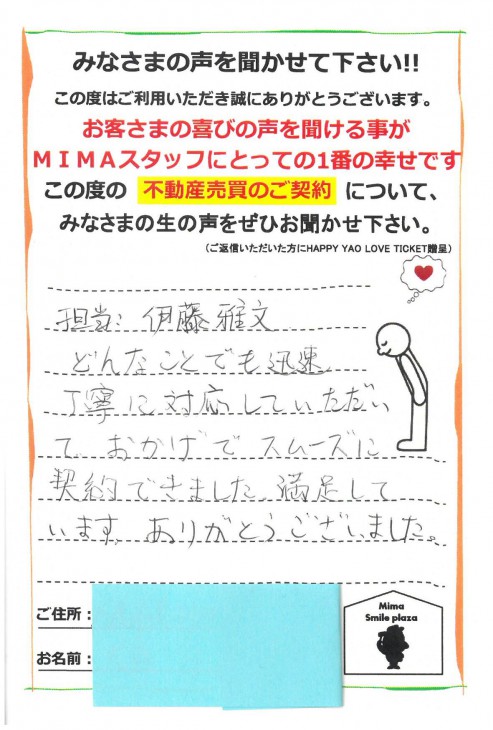 みなさまの声を聞かせて下さい!!
この度はご利用いただき誠にありがとうございます。
お客さまの喜びの声を聞ける事が
MIMAスタッフにとっての1番の幸せです
この度の 不動産売買のご契約 について、
みなさまの生の声をぜひお聞かせ下さい。
（ご返信いただいた方にHAPPY YAO LOVE TICKET贈呈）
担当: 伊藤雅文
どんなことでも迅速
丁寧に対応していただい
て、おかげでスムーズに
契約できました。満足して
います。ありがとうございました。
ご住所：
お名前：
Mima
Smile plaza